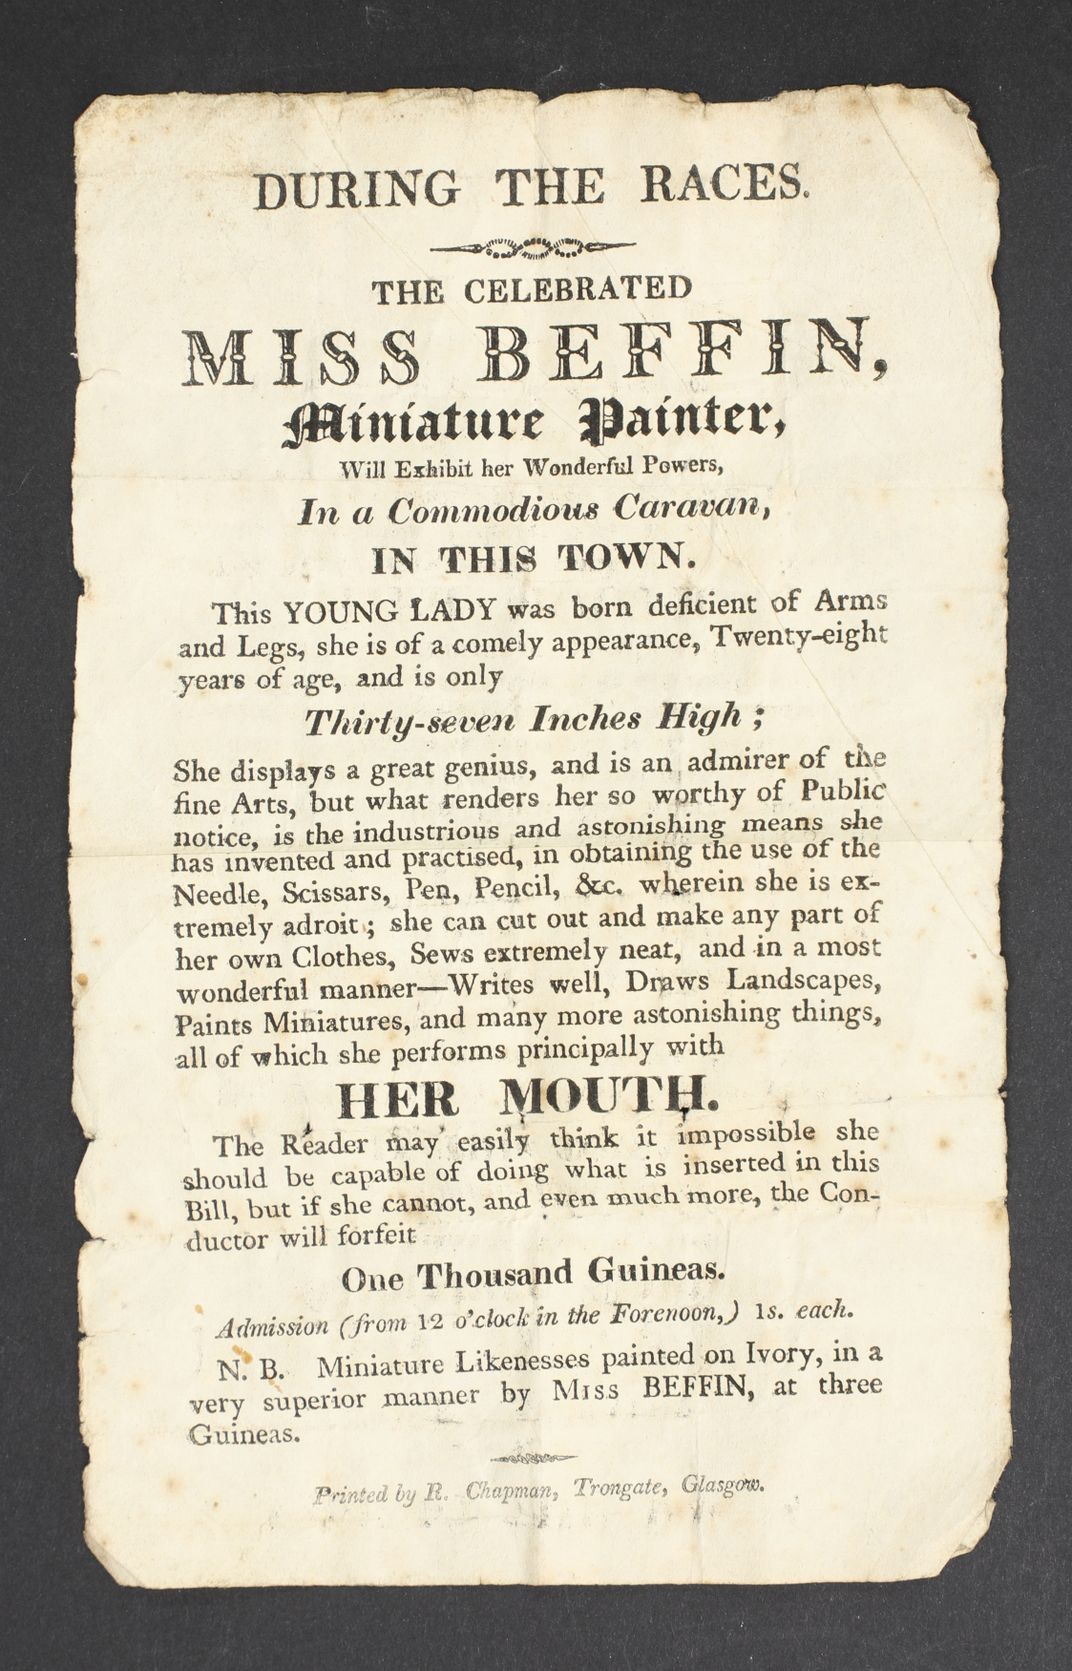 DURING THE RACES.
THE CELEBRATED
MISS BEFFIN,
Miniature Painter,
Will Exhibit her Wonderful Powers,
In a Commodious Caravan,
IN THIS TOWN.
This YOUNG LADY was born deficient of Arms
and Legs, she is of a comely appearance, Twenty-eight
years of age, and is only
Thirty-seven Inches High ;
She displays a great genius, and is an admirer of the
fine Arts, but what renders her so worthy of Public
notice, is the industrious and astonishing means she
has invented and practised, in obtaining the use of the
Needle, Scissars, Pen, Pencil, &c. wherein she is ex-
tremely adroit ; she can cut out and make any part of
her own Clothes, Sews extremely neat, and in a most
wonderful manner—Writes well, Draws Landscapes,
Paints Miniatures, and many more astonishing things,
all of which she performs principally with
HER MOUTH.
The Reader may easily think it impossible she
should be capable of doing what is inserted in this
Bill, but if she cannot, and even much more, the Con-
ductor will forfeit
One Thousand Guineas.
Admission (from 12 o'clock in the Forenoon,) 1s. each.
N. B. Miniature Likenesses painted on Ivory, in a
very superior manner by Miss BEFFIN, at three
Guineas.
Printed by R. Chapman, Trongate, Glasgow.